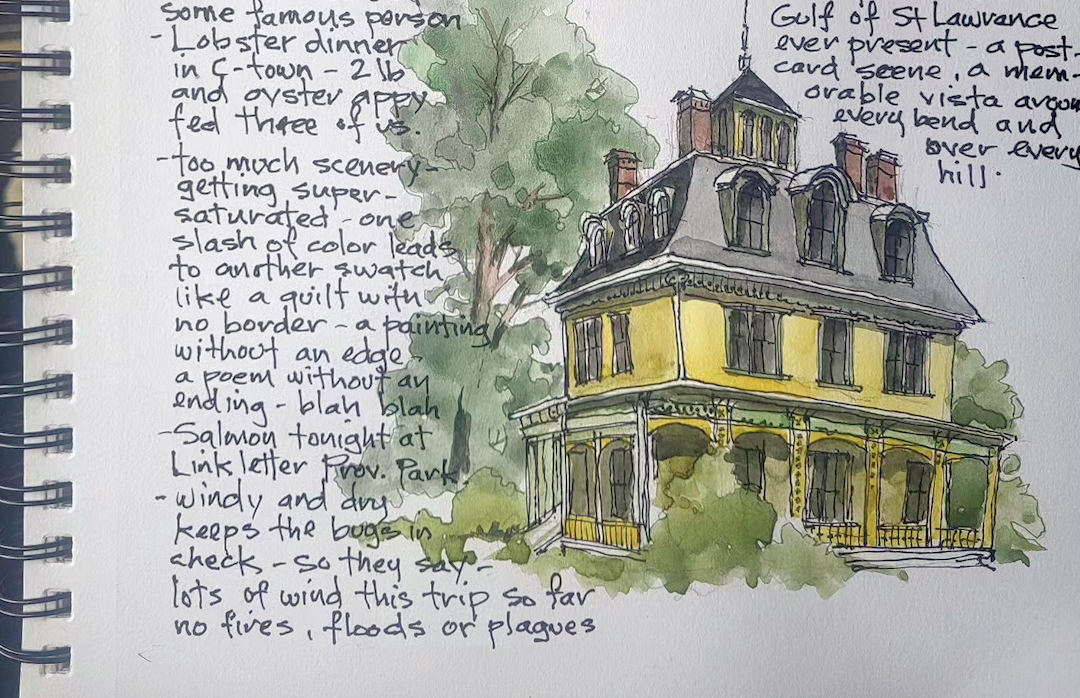 some famous person
- Lobster dinner
in C-town - 2 lb
and oyster appy
fed three of us.
- too much scenery -
getting super-
saturated - one
slash of color leads
to another swatch
like a quilt with
no border - a painting
without an edge -
a poem without an
ending - blah blah
- Salmon tonight at
Linkletter Prov. Park.
- windy and dry
keeps the bugs in
check - so they say -
lots of wind this trip so far
no fires, floods or plagues
Gulf of St Lawrance
ever present - a post-
card scene, a mem-
orable vista aroun
every bend and
over every
hill.